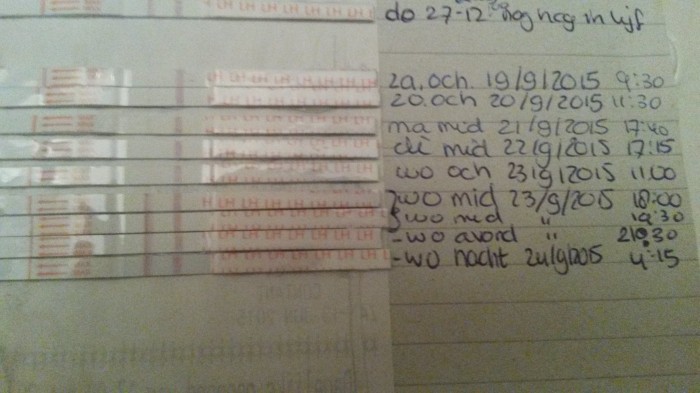 do 27-12 nog hcg in lijf
za. och. 19/9/2015 9:30
zo. och 20/9/2015 11:30
ma mid 21/9/2015 17:40
di mid 22/9/2015 17:15
wo och 23/9/2015 11.00
wo mid 23/9/2015 18:00
wo mid " 19:30
-wo avond " 21:30
-wo nacht 24/9/2015 4:15
LH LH LH LH LH
CONTANT
JUN 2015